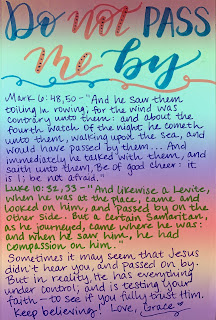 Do not PASS
me by
Mark 6:48,50 - "And he saw them
toiling in rowing; for the wind was
contrary unto them: and about the
fourth watch of the night he cometh
unto them, walking upon the sea, and
would have passed by them... And
immediately he talked with them, and
saith unto them, Be of good cheer: it
is I; be not afraid."
Luke 10:32,33 - "And likewise a Levite,
when he was at the place, came and
looked on him, and passed by on the
other side. But a certain Samaritan,
as he journeyed, came where he was:
and when he saw him, he had
compassion on him."
Sometimes it may seem that Jesus
didn't hear you, and passed on by.
But in reality, He has everything
under control; and is testing your
faith - to see if you fully trust Him.
Keep believing! Love, Grace